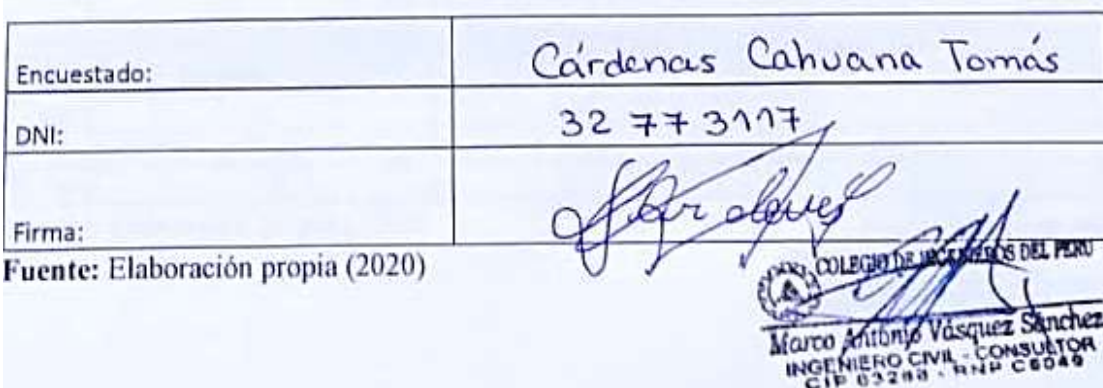 Encuestado: Cárdenas Cahuana Tomás
DNI: 32 773117
Firma:
Fuente: Elaboración propia (2020)
COLEGIO DE INGENIEROS DEL PERU
Marco Antonio Vásquez Sánchez
INGENIERO CIVIL - CONSULTOR
CIP 83288 - RNP C6049